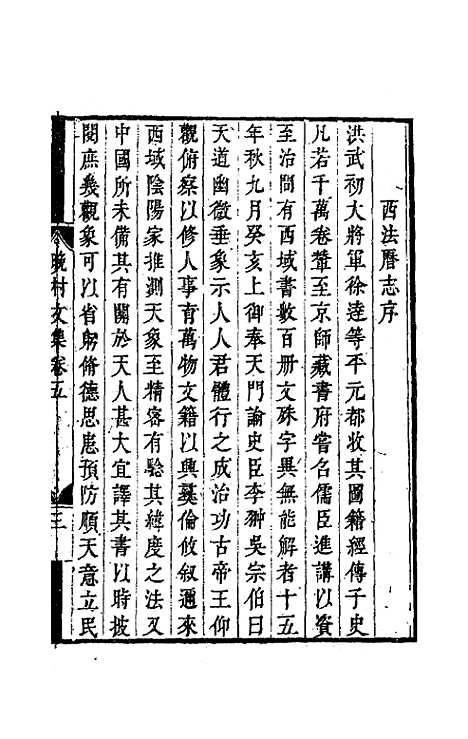 西法曆志序
洪武初大將軍徐逹等平元都收其圖籍經傳子史
凡若干萬卷輦至京師藏書府嘗名儒臣進講以資
至治間有西域書數百册文殊字異無能解者十五
年秋九月癸亥上御奉天門諭史臣李翀吳宗伯曰
天道幽微垂象示人人君體行之成治功古帝王仰
觀俯察以修人事育萬物文籍以興彝倫攸叙邇來
西域陰陽家推測天象至精密有驗其緯度之法又
中國所未備其有關於天人甚大宜譯其書以時披
閱庶幾觀象可以省躬脩德思患預防順天意立民
晚村文集卷五
三